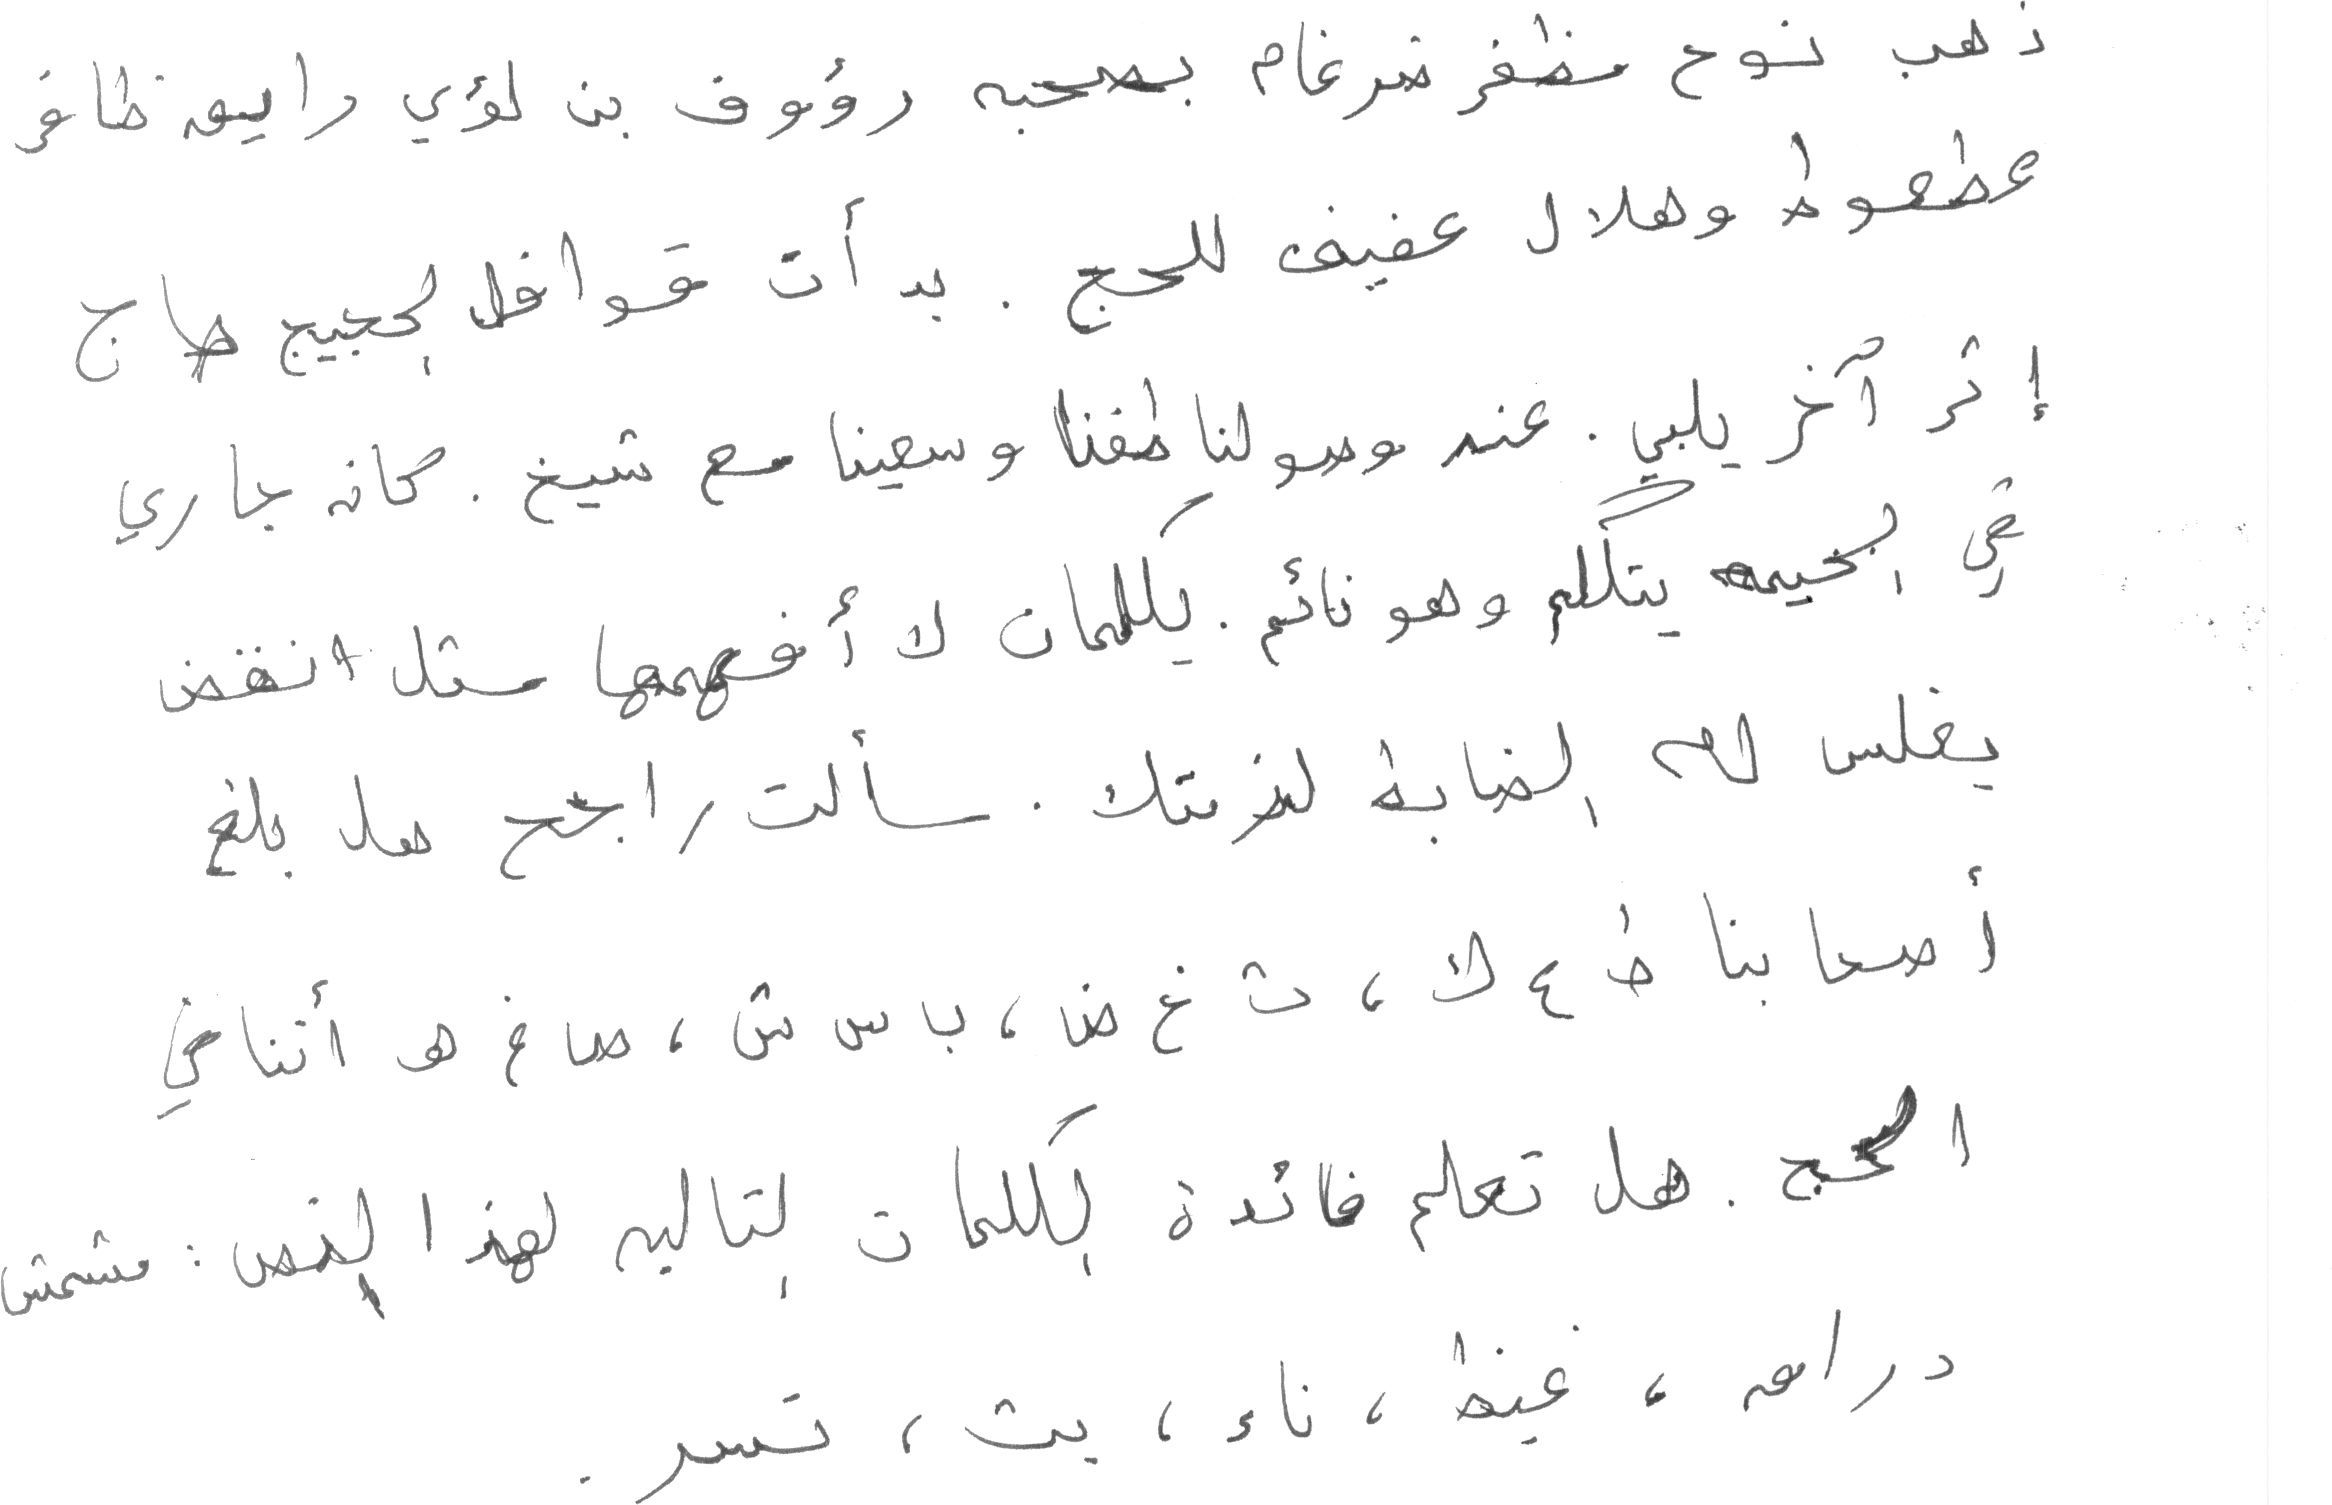 ذهب نوح مظفر ضرغام بصحبه رؤوف بن لؤي راييق ظافر
عطعوط وهلال عفيف للحج . بدأت قوافل الحجيج حاج
إثر آخر يلبي . عند وصولنا طفنا وسعينا مع شيخ . كان جاري
في الخيمه يتكلم وهو نائم . بكلمات لا أفهمها مثل انقض
يغلس له الضابط لذمتك . سألت راجح هل بلغ
أصحابنا ظ ع ك ، ث غ ض ، ب س ش ، صا غ هـ أثنا في
الحج . هل تعلم فائدة الكلمات التاليه لهذا النص : مشمش
دراهه ، غيظ ، ناء ، يث ، تسر .